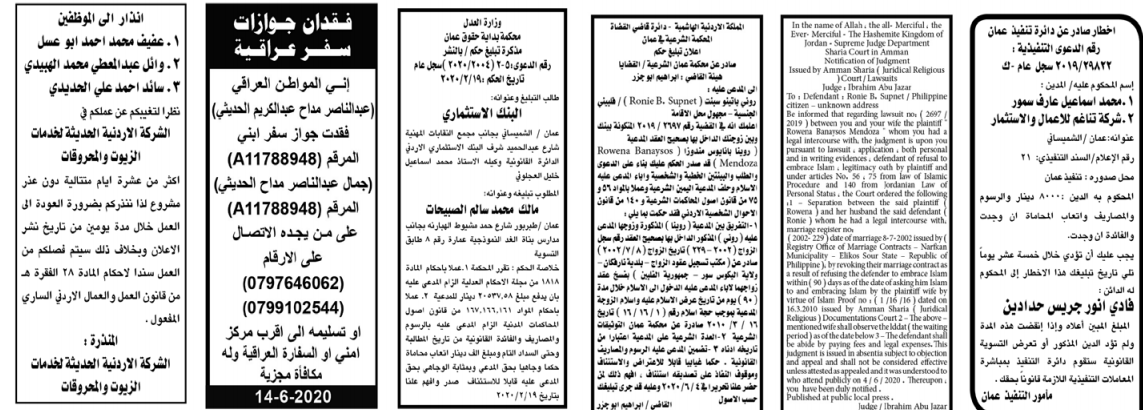 اخطار صادر عن دائرة تنفيذ عمان
رقم الدعوى التنفيذية :
٢٠١٩/٢٩٨٢٢ سجل عام -ك
إسم المحكوم عليه/ المدين :
١.محمد اسماعيل عارف سمور
٢.شركة تناغم للاعمال والاستثمار
عنوانه:عمان/الشميساني
رقم الإعلام/السند التنفيذي: ٢١
محل صدوره : تنفيذ عمان
المحكوم به الدين : ٨٠٠٠ دينار والرسوم
والمصاريف واتعاب المحاماة ان وجدت
والفائدة ان وجدت.
يجب عليك أن تؤدي خلال خمسة عشر يوماً
تلي تاريخ تبليغك هذا الاخطار إلى المحكوم
له الدائن :
فادي انور جريس حدادين
المبلغ المبين أعلاه وإذا إنقضت هذه المدة
ولم تؤد الدين المذكور أو تعرض التسوية
القانونية ستقوم دائرة التنفيذ بمباشرة
المعاملات التنفيذية اللازمة قانوناً بحقك .
مأمور التنفيذ عمان
In the name of Allah , the all- Merciful , the
Ever- Merciful - The Hashemite Kingdom of
Jordan - Supreme Judge Department
Sharia Court in Amman
Notification of Judgment
Issued by Amman Sharia ( Juridical Religious
) Court / Lawsuits
Judge : Ibrahim Abu Jazar
To : Defendant : Ronie B. Supnet / Philippine
citizen – unknown address
Be informed that regarding lawsuit no. ( 2697 /
2019 ) between you and your wife the plaintiff "
Rowena Banaysos Mendoza " whom you had a
legal intercourse with, the judgment is upon you
pursuant to lawsuit , application , both personal
and in writing evidences , defendant of refusal to
embrace Islam , legitimacy oath by plaintiff and
under articles No. 56 , 75 from law of Islamic
Procedure and 140 from Jordanian Law of
Personal Status , the Court ordered the following
:1 – Separation between the said plaintiff (
Rowena ) and her husband the said defendant (
Ronie ) whom he had a legal intercourse with,
marriage register no:
( 2002- 229 ) date of marriage 8-7-2002 issued by (
Registry Office of Marriage Contracts – Narfkan
Municipality – Elikos Sour State – Republic of
Philippine ), by revoking their marriage contract as
a result of refusing the defenter to embrace Islam
within ( 90 ) days as of the date of asking him Islam
to and embracing Islam by the plaintiff wife by
virtue of Islam Proof no : ( 1 /16 /16 ) dated on
16.3.2010 issued by Amman Sharia ( Juridical
Religious ) Documentations Court 2 – The above –
mentioned wife shall observe the Iddat ( the waiting
period ) as of the date below 3 – The defendant shall
be abide by paying fees and legal expenses. This
judgment is issued in absentia subject to objection
and appeal and shall not be considered effective
unless attested as appealed and it was understood to
who attend publicly on 4 / 6 / 2020 . Thereupon ,
you have been duly notified .
Published at public local press .
Judge / Ibrahim Abu Jazar
المملكة الاردنية الهاشمية - دائرة قاضي القضاة
المحكمة الشرعية في عمان
اعلان تبليغ حكم
صادر عن محكمة عمان الشرعية / القضايا
هيئة القاضي : ابراهيم ابو جزر
الى المدعى عليه :
روني باتينو سبنت ( Ronie B. Supnet ) / فلبيني
الجنسية - مجهول محل الاقامة
اعلمك الله في القضية رقم ٢٦٩٧ / ٢٠١٩ المتكونة بينك
وبين زوجتك الداخل بها بصحيح العقد المدعية
( روينا بانايوس مندوزا Rowena Banaysos
Mendoza ) قد صدر الحكم عليك بناء على الدعوى
والطلب والبينتين الخطية والشخصية واباء المدعى عليه
الاسلام وحلف المدعية اليمين الشرعية وعملا بالمواد ٥٦ و
٧٥ من قانون اصول المحاكمات الشرعية و ١٤٠ من قانون
الاحوال الشخصية الاردني فقد حكمت بما يلي :
١-التفريق بين المدعية ( روينا ) المذكورة وزوجها المدعى
عليه ( روني ) المذكور الداخل بها بصحيح العقد رقم سجل
الزواج ( ٢٠٠٢ - ٢٢٩ ) تاريخ الزواج ( ٨ / ٧ / ٢٠٠٢ )
صادر عن ( مكتب تسجيل عقود الزواج - بلدية نارفكان -
ولاية اليكوس سور - جمهورية الفلبين ) بفسخ عقد
زواجهما لاباء المدعى عليه الدخول الى الاسلام خلال مدة
( ٩٠ ) يوم من تاريخ عرض الاسلام عليه واسلام الزوجة
المدعية بموجب حجة اسلام رقم ( ١ / ١٦ / ١٦ ) تاريخ
١٦ / ٣ / ٢٠١٠ صادرة عن محكمة عمان التوثيقات
الشرعية ٢-العدة الشرعية على المدعية اعتبارا من
تاريخه ادناه ٣-تضمين المدعى عليه الرسوم والمصاريف
القانونية . حكما غيابيا قابلا للاعتراض والاستئناف
وموقوف النفاذ على تصديقه استئنافا ، افهم ذلك لمن
حضر علنا تحريرا في ٤ / ٦ / ٢٠٢٠ وعليه قد جرى تبليغك
حسب الاصول
القاضي / ابراهيم ابو جزر
وزارة العدل
محكمة بداية حقوق عمان
مذكرة تبليغ حكم / بالنشر
رقم الدعوى:٥-٢ (٢٠٢٠/٢٠٠٤)سجل عام
تاريخ الحكم :٢٠٢٠/٢/١٩
طالب التبليغ وعنوانه:
البنك الاستثماري
عمان / الشميساني بجانب مجمع النقابات المهنية
شارع عبدالحميد شرف البنك الاستثماري الاردني
الدائرة القانونية وكيله الاستاذ محمد اسماعيل
خليل العجلوني
المطلوب تبليغه وعنوانه:
مالك محمد سالم الصبيحات
عمان /طبربور شارع حمد مشبوط الهبارنه بجانب
مدارس بناة الغد النموذجية عمارة رقم ٨ طابق
التسوية
خلاصة الحكم : تقرر المحكمة ١.عملا باحكام المادة
١٨١٨ من مجلة الاحكام العدلية الزام المدعى عليه
بان يدفع مبلغ ٢٠٥٣٧,٥٨ دينار للمدعية ٢. عملا
باحكام المواد ١٦٧,١٦٦,١٦١ من قانون اصول
المحاكمات المدنية الزام المدعى عليه بالرسوم
والمصاريف والفائدة القانونية من تاريخ المطالبة
وحتى السداد التام ومبلغ الف دينار اتعاب محاماة
حكما وجاهيا بحق المدعي وبمثابة الوجاهي بحق
المدعى عليه قابلا للاستئناف صدر وافهم علنا
بتاريخ ٢٠٢٠/٢/١٩
فقدان جوازات
سفر عراقية
إنـي المواطـن العراقي
(عبدالناصر مداح عبدالكريم الحديثي)
فقدت جواز سفر ابني
المرقم (A11788948)
(جمال عبدالناصر مداح الحديثي)
المرقم (A11788948)
على مـن يجـده الاتصـال
على الارقام
(0797646062)
(0799102544)
او تسليمه الى اقرب مركز
امني او السفارة العراقية وله
مكافأة مجزية
14-6-2020
انذار الى الموظفين
١ . عفيف محمد احمد ابو عسل
٢ . وائل عبدالمعطي محمد الهبيدي
٣ . سائد احمد علي الحديدي
نظرا لتغيبكم عن عملكم في
الشركة الاردنية الحديثة لخدمات
الزيوت والمحروقات
اكثر من عشرة ايام متتالية دون عذر
مشروع لذا ننذركم بضرورة العودة الى
العمل خلال مدة يومين من تاريخ نشر
الاعلان وبخلاف ذلك سيتم فصلكم من
العمل سندا لاحكام المادة ٢٨ الفقرة هـ
من قانون العمل والعمال الاردني الساري
المفعول .
المنذرة :
الشركة الاردنية الحديثة لخدمات
الزيوت والمحروقات